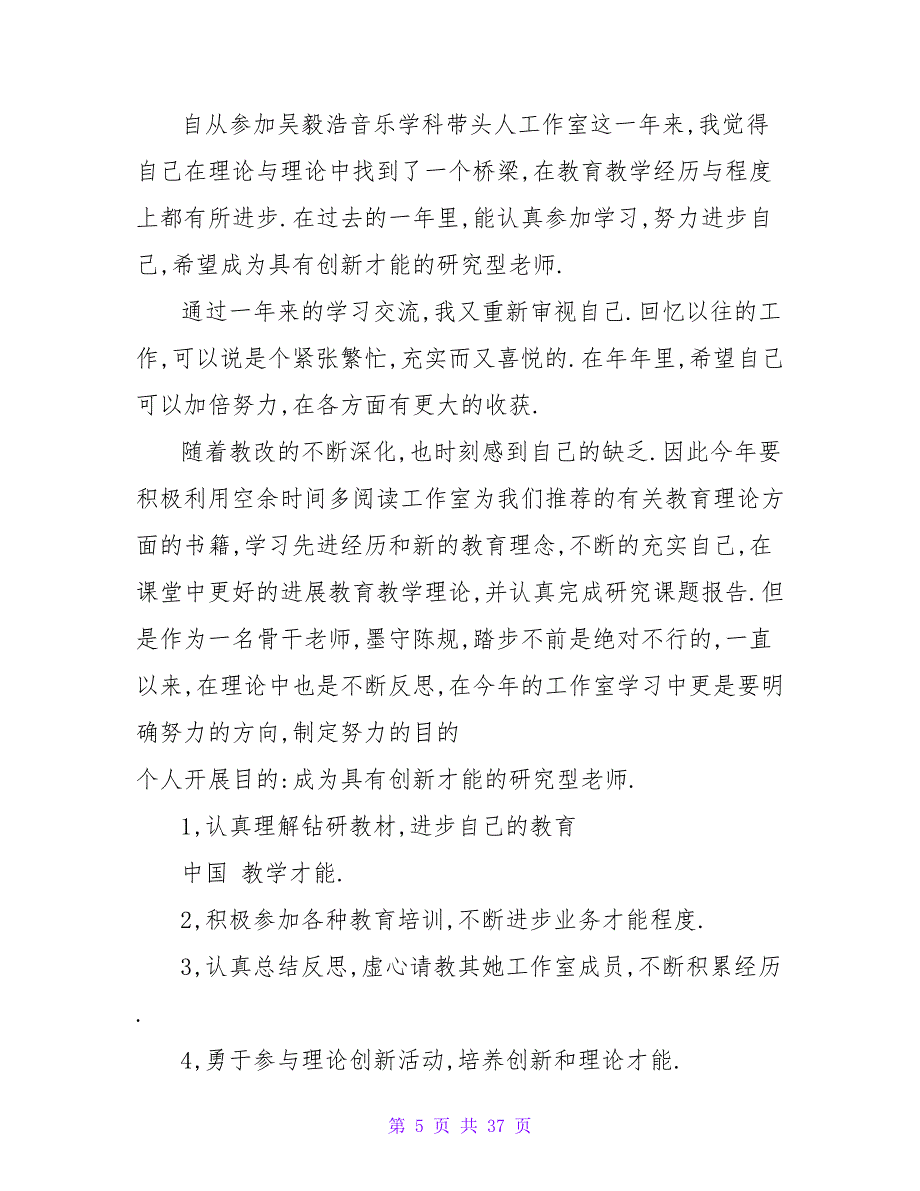 自从参加吴毅浩音乐学科带头人工作室这一年来,我觉得
自己在理论与理论中找到了一个桥梁,在教育教学经历与程度
上都有所进步.在过去的一年里,能认真参加学习,努力进步自
己,希望成为具有创新才能的研究型老师.
通过一年来的学习交流,我又重新审视自己.回忆以往的工
作,可以说是个紧张繁忙,充实而又喜悦的.在年年里,希望自己
可以加倍努力,在各方面有更大的收获.
随着教改的不断深化,也时刻感到自己的缺乏.因此今年要
积极利用空余时间多阅读工作室为我们推荐的有关教育理论方
面的书籍,学习先进经历和新的教育理念,不断的充实自己,在
课堂中更好的进展教育教学理论,并认真完成研究课题报告.但
是作为一名骨干老师,墨守陈规,踏步不前是绝对不行的,一直
以来,在理论中也是不断反思,在今年的工作室学习中更是要明
确努力的方向,制定努力的目的
个人开展目的:成为具有创新才能的研究型老师.
1,认真理解钻研教材,进步自己的教育
中国 教学才能.
2,积极参加各种教育培训,不断进步业务才能程度.
3,认真总结反思,虚心请教其她工作室成员,不断积累经历
.
4,勇于参与理论创新活动,培养创新和理论才能.
第 5 页 共 37 页